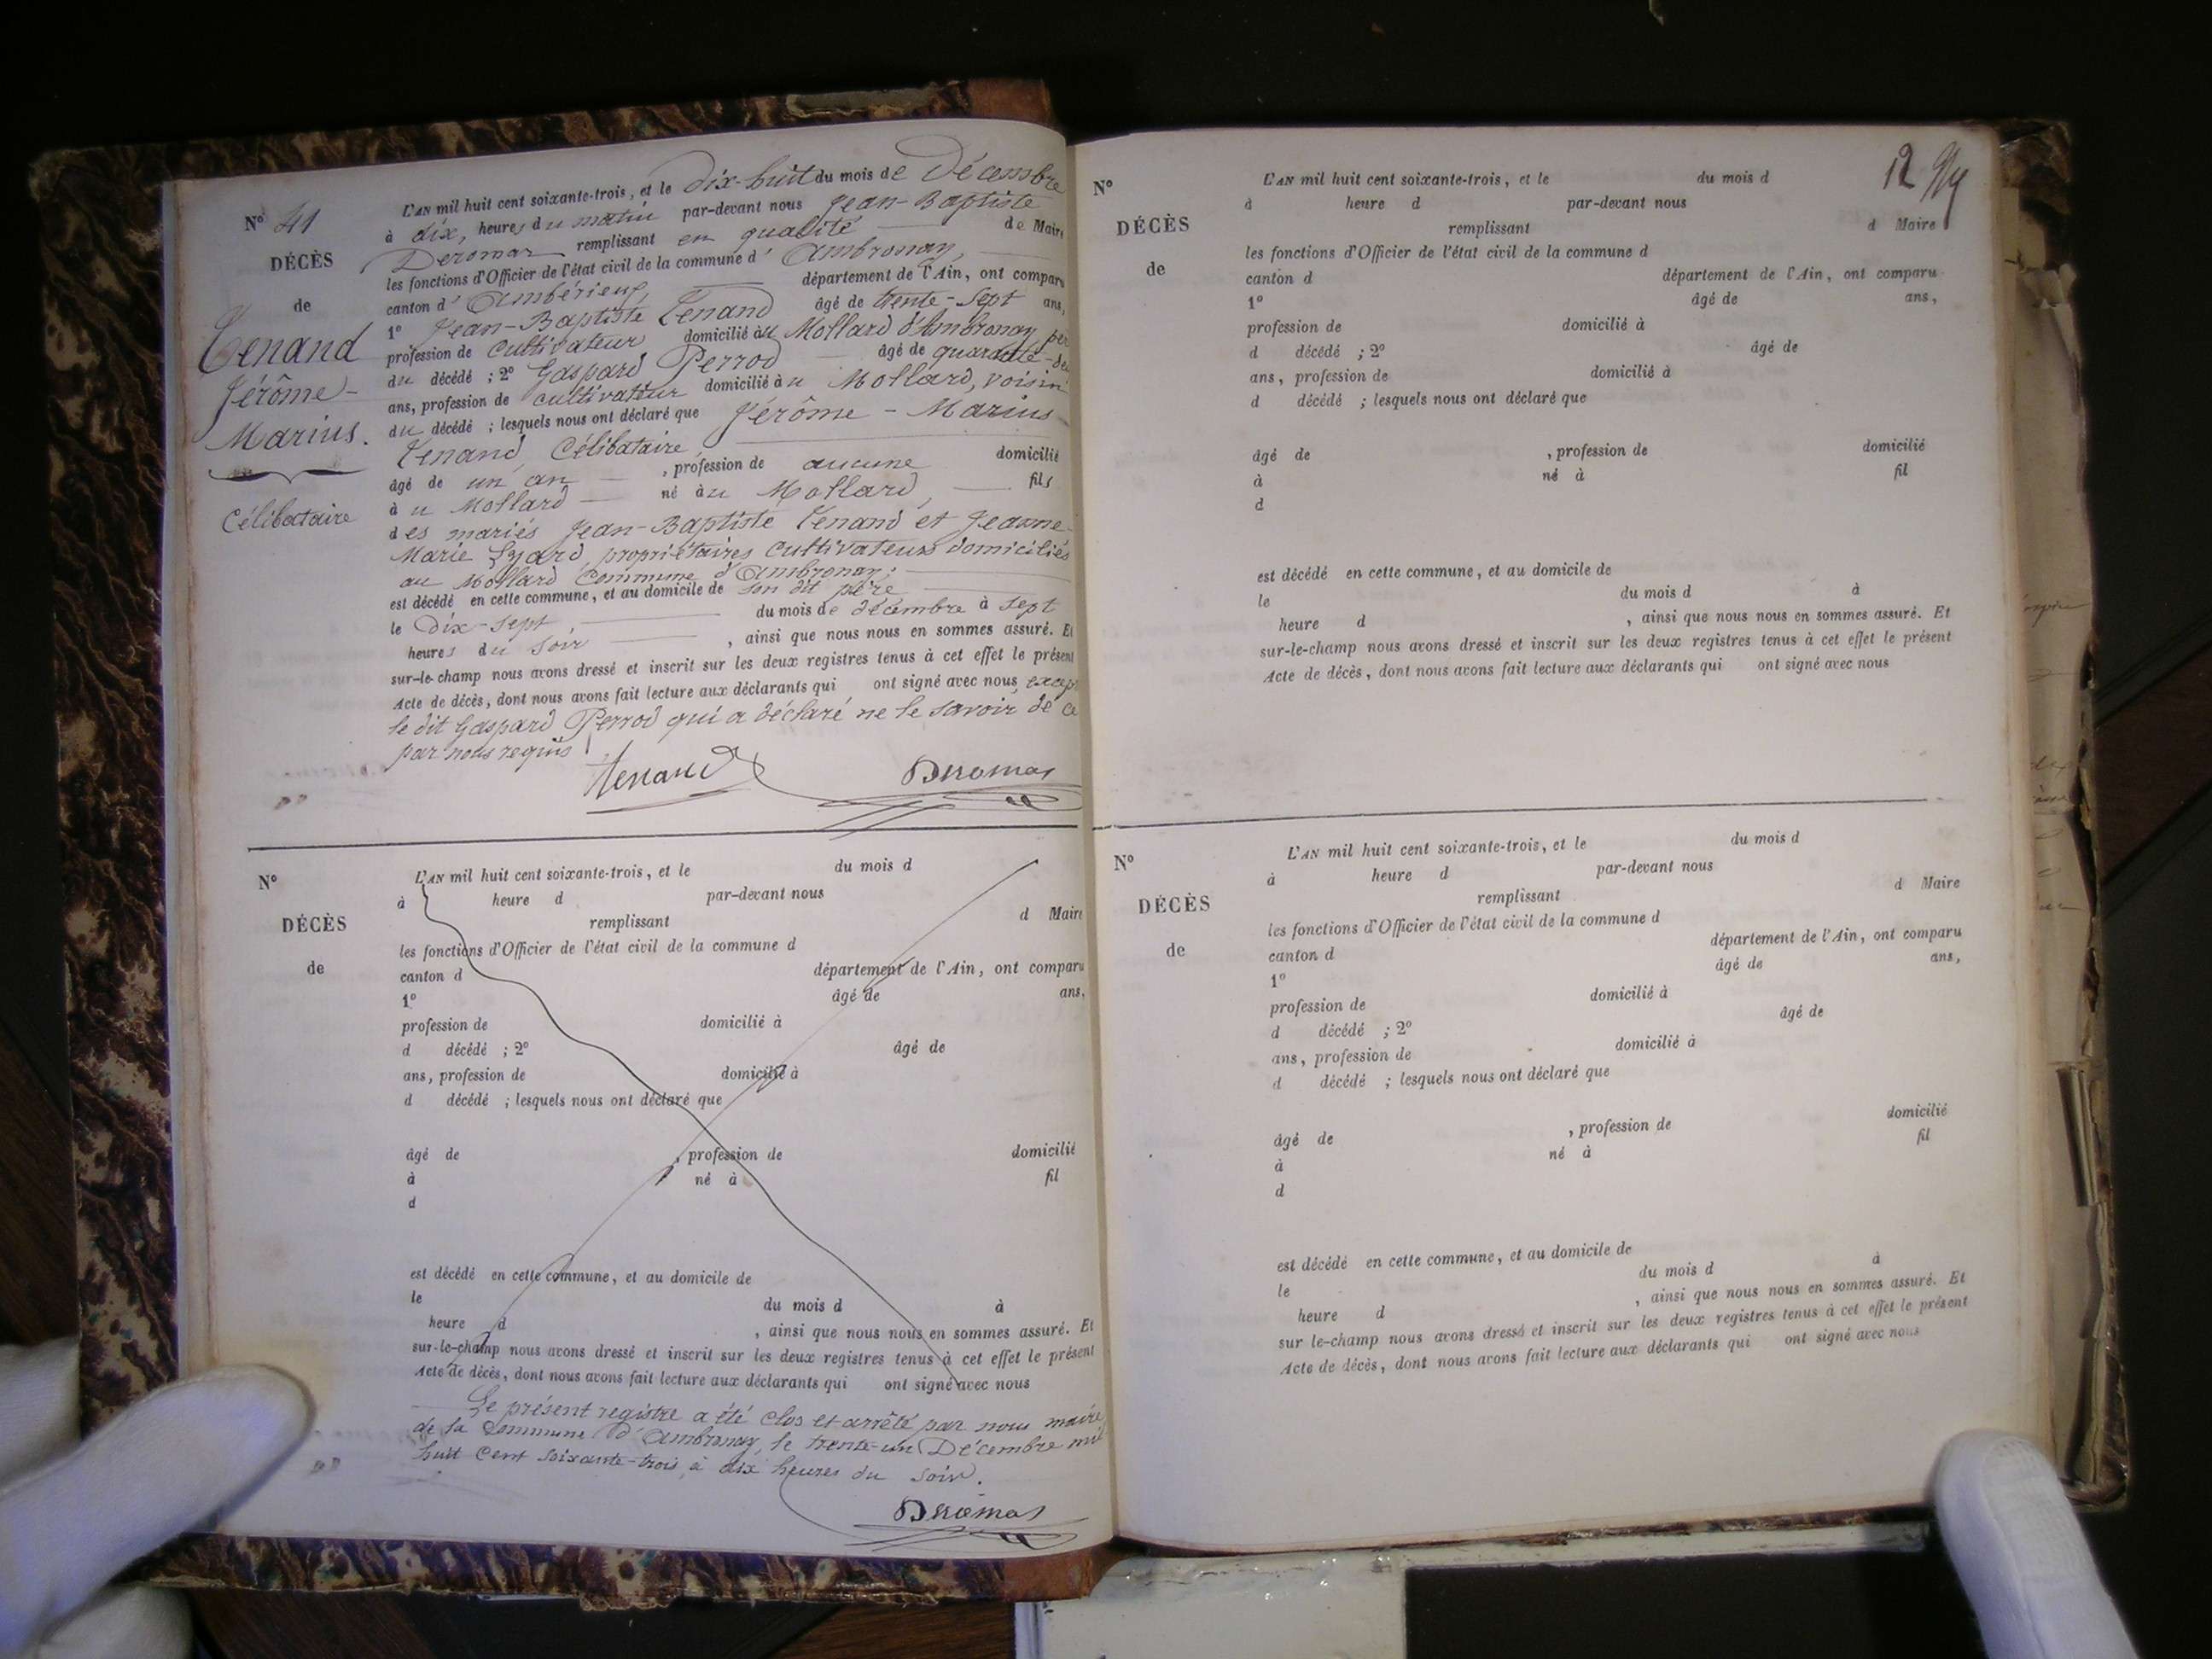 N° 41
DÉCÈS
de
Tenand
Jérôme-
Marius.
Célibataire
L'AN mil huit cent soixante-trois, et le dix-huit du mois de Décembre
à dix, heures du matin par-devant nous Jean-Baptiste
Deromas remplissant en qualité de Maire
les fonctions d'Officier de l'état civil de la commune d'Ambronay,
canton d'Ambérieux, département de l'Ain, ont comparu
1° Jean-Baptiste Tenand âgé de trente-sept ans,
profession de cultivateur domicilié au Mollard d'Ambronay, pèr
du décédé ; 2° Gaspard Perrod âgé de quarante-de
ans, profession de cultivateur domicilié au Mollard, voisin
du décédé ; lesquels nous ont déclaré que Jérôme - Marius
Tenand, Célibataire,
âgé de un an , profession de aucune domicilié
au Mollard né au Mollard, fils
des mariés Jean-Baptiste Tenand et Jeanne-
Marie propriétaires cultivateurs domiciliés
au Mollard Commune d'Ambronay;
est décédé en cette commune, et au domicile de son dit père
le Dix-sept, du mois de décembre à sept
heures du soir , ainsi que nous nous en sommes assuré. Et
sur-le-champ nous avons dressé et inscrit sur les deux registres tenus à cet effet le présent
Acte de décès, dont nous avons fait lecture aux déclarants qui ont signé avec nous, excep
le dit Gaspard Perrod qui a déclaré ne le savoir de ce
par nous requis
Tenand Deromas
N°
DÉCÈS
de
L'AN mil huit cent soixante-trois, et le du mois d
à heure d par-devant nous
remplissant d Maire
les fonctions d'Officier de l'état civil de la commune d
canton d département de l'Ain, ont comparu
1° âgé de ans,
profession de domicilié à
d décédé ; 2° âgé de
ans, profession de domicilié à
d décédé ; lesquels nous ont déclaré que
âgé de , profession de domicilié
à né à fil
d
est décédé en cette commune, et au domicile de
le du mois d à
heure d , ainsi que nous nous en sommes assuré. Et
sur-le-champ nous avons dressé et inscrit sur les deux registres tenus à cet effet le présent
Acte de décès, dont nous avons fait lecture aux déclarants qui ont signé avec nous
Le présent registre a été clos et arrêté par nous maire
de la Commune d'Ambronay, le trente-un Décembre mil
huit Cent soixante-trois, à dix heures du soir.
Deromas
12
N°
DÉCÈS
de
L'AN mil huit cent soixante-trois, et le du mois d
à heure d par-devant nous
remplissant d Maire
les fonctions d'Officier de l'état civil de la commune d
canton d département de l'Ain, ont comparu
1° âgé de ans,
profession de domicilié à
d décédé ; 2° âgé de
ans, profession de domicilié à
d décédé ; lesquels nous ont déclaré que
âgé de , profession de domicilié
à né à fil
d
est décédé en cette commune, et au domicile de
le du mois d à
heure d , ainsi que nous nous en sommes assuré. Et
sur-le-champ nous avons dressé et inscrit sur les deux registres tenus à cet effet le présent
Acte de décès, dont nous avons fait lecture aux déclarants qui ont signé avec nous
N°
DÉCÈS
de
L'AN mil huit cent soixante-trois, et le du mois d
à heure d par-devant nous
remplissant d Maire
les fonctions d'Officier de l'état civil de la commune d
canton d département de l'Ain, ont comparu
1° âgé de ans,
profession de domicilié à
d décédé ; 2° âgé de
ans, profession de domicilié à
d décédé ; lesquels nous ont déclaré que
âgé de , profession de domicilié
à né à fil
d
est décédé en cette commune, et au domicile de
le du mois d à
heure d , ainsi que nous nous en sommes assuré. Et
sur le-champ nous avons dressé et inscrit sur les deux registres tenus à cet effet le présent
Acte de décès, dont nous avons fait lecture aux déclarants qui ont signé avec nous